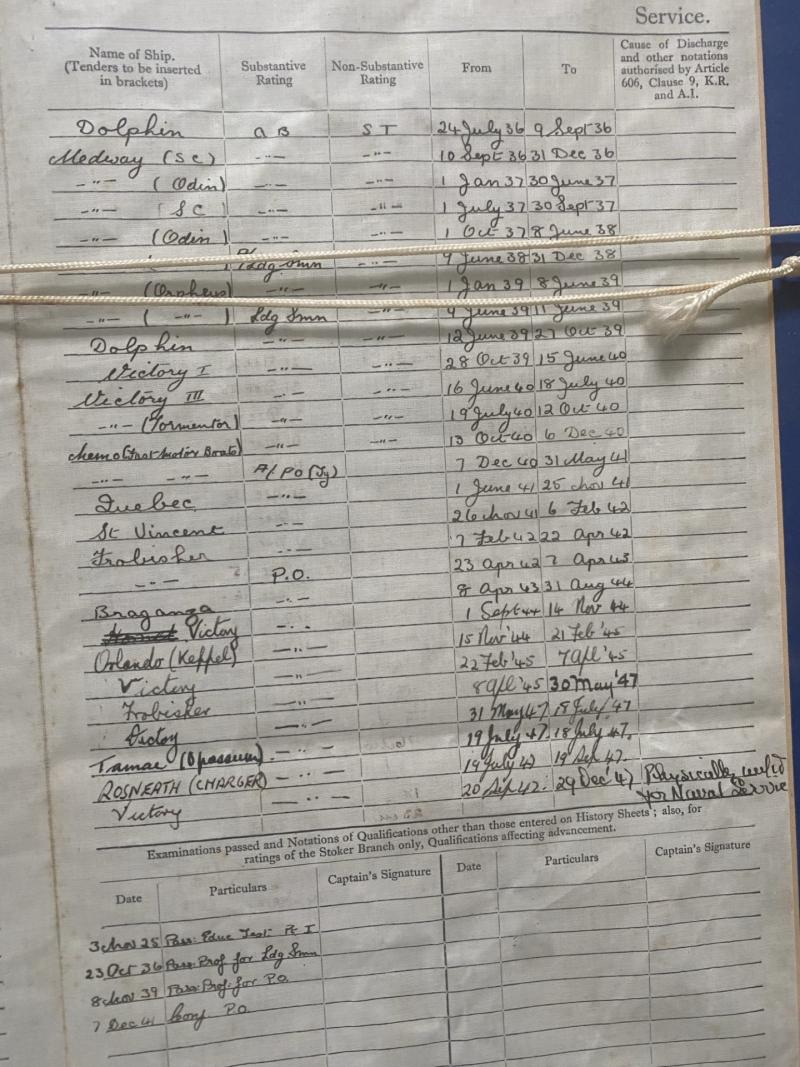 Service.
Name of Ship. (Tenders to be inserted in brackets) Substantive Rating Non-Substantive Rating From To Cause of Discharge and other notations authorised by Article 606, Clause 9, K.R. and A.I.
Dolphin AB ST 24 July 36 9 Sept 36
Medway (SC) -"- -"- 10 Sept 36 31 Dec 36
-"- (Odin) -"- -"- 1 Jan 37 30 June 37
-"- (SC -"- -"- 1 July 37 30 Sept 37
-"- (Odin) -"- -"- 1 Oct 37 8 June 38
Ldg Smn -"- 9 June 38 31 Dec 38
-"- (Orpheus) -"- -"- 1 Jan 39 8 June 39
-"- ( -"- ) Ldg Smn -"- 9 June 39 11 June 39
Dolphin -"- -"- 12 June 39 27 Oct 39
Victory I -"- -"- 28 Oct 39 15 June 40
Victory III -"- -"- 16 June 40 18 July 40
-"- (Tormentor) -"- -"- 19 July 40 12 Oct 40
(Fast Motor Boats) -"- -"- 13 Oct 40 6 Dec 40
-"- -"- A/PO (Ty) 7 Dec 40 31 May 41
Quebec -"- 1 June 41 25 Nov 41
St Vincent -"- 26 Nov 41 6 Feb 42
Frobisher -"- 7 Feb 42 22 Apr 42
-"- P.O. 23 Apr 42 7 Apr 43
Braganza -"- 8 Apr 43 31 Aug 44
Victory -"- 1 Sept 44 14 Nov 44
Orlando (Keppel) -"- 15 Nov '44 21 Feb '45
Victory -"- 22 Feb '45 7 Apl '45
Frobisher -"- 8 Apl '45 30 May '47
Victory -"- 31 May 47 18 July '47
Tamar (Opossum) -"- 19 July 47 18 July 47.
ROSNEATH (CHARGER) -"- 19 July 47 19 Sep 47.
Victory -"- 20 Sep 47. 29 Dec '47 Physically unfit for Naval Service
Examinations passed and Notations of Qualifications other than those entered on History Sheets; also, for
ratings of the Stoker Branch only, Qualifications affecting advancement.
Date Particulars Captain's Signature Date Particulars Captain's Signature
3 Nov 25 Pass: Educ Test: Pt I
23 Oct 36 Pass: Prof for Ldg Smn
8 Nov 39 Pass: Prof: for P.O.
7 Dec 41 Conf P.O